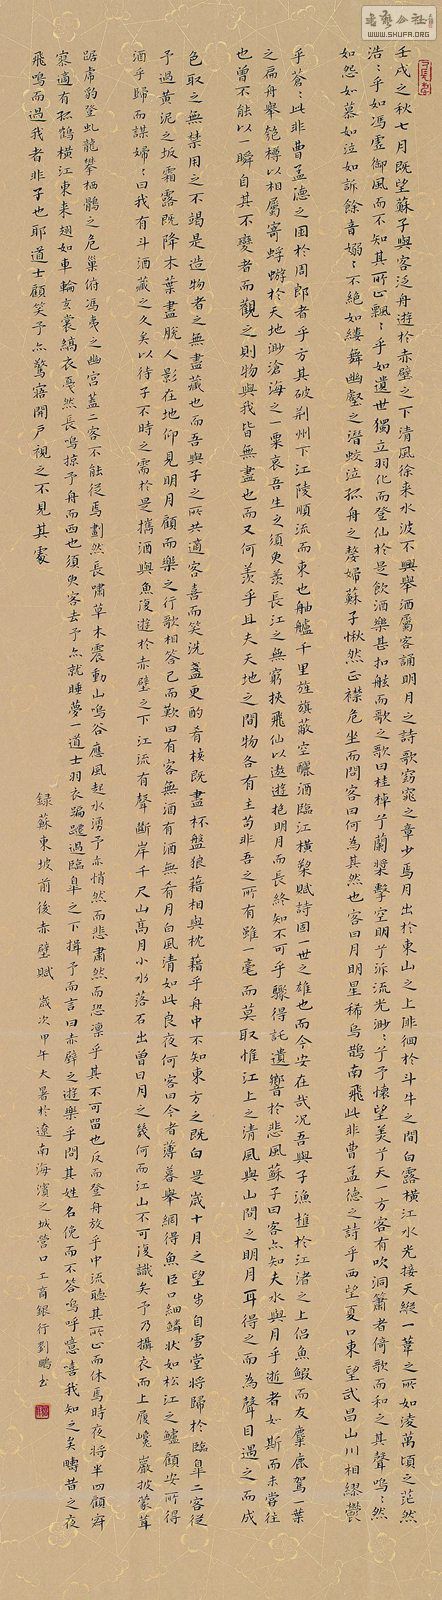 壬戌之秋七月既望蘇子與客泛舟遊於赤壁之下清風徐來水波不興舉酒屬客誦明月之詩歌窈窕之章少焉月出於東山之上徘徊於斗牛之間白露橫江水光接天縱一葦之所如淩萬頃之茫然
浩:乎如馮虛御風而不知其所止飄:乎如遺世獨立羽化而登仙於是飲酒樂甚扣舷而歌之歌曰桂棹兮蘭槳擊空明兮泝流光渺:兮予懷望美兮天一方客有吹洞簫者倚歌而和之其聲嗚:然
如怨如慕如泣如訴餘音嫋:不絕如縷舞幽壑之潛蛟泣孤舟之嫠婦蘇子愀然正襟危坐而問客曰何為其然也客曰月明星稀烏鵲南飛此非曹孟德之詩乎西望夏口東望武昌山川相繆鬱
乎蒼:此非曹孟德之困於周郎者乎方其破荊州下江陵順流而東也舳艫千里旌旗蔽空釃酒臨江橫槊賦詩固一世之雄也而今安在哉況吾與子漁樵於江渚之上侶魚蝦而友麋鹿駕一葉
之扁舟舉匏樽以相屬寄蜉蝣於天地渺滄海之一粟哀吾生之須臾羨長江之無窮挾飛仙以遨遊抱明月而長終知不可乎驟得託遺響於悲風蘇子曰客亦知夫水與月乎逝者如斯而未嘗往
也曾不能以一瞬自其不變者而觀之則物與我皆無盡也而又何羨乎且夫天地之間物各有主苟非吾之所有雖一毫而莫取惟江上之清風與山間之明月耳得之而為聲目遇之而成
色取之無禁用之不竭是造物者之無盡藏也而吾與子之所共適客喜而笑洗盞更酌肴核既盡杯盤狼藉相與枕藉乎舟中不知東方之既白是歲十月之望步自雪堂將歸於臨皋二客從
予過黃泥之坂霜露既降木葉盡脫人影在地仰見明月顧而樂之行歌相答已而歎曰有客無酒有酒無肴月白風清如此良夜何客曰今者薄暮舉網得魚巨口細鱗狀如松江之鱸顧安所得
酒乎歸而謀婦:曰我有斗酒藏之久矣以待子不時之需於是攜酒與魚復遊於赤壁之下江流有聲斷岸千尺山高月小水落石出曾日月之幾何而江山不可復識矣予乃攝衣而上履巉巖披蒙茸
踞虎豹登虬龍攀栖鶻之危巢俯馮夷之幽宮蓋二客不能從焉劃然長嘯草木震動山鳴谷應風起水湧予亦悄然而悲肅然而恐凜乎其不可留也反而登舟放乎中流聽其所止而休焉時夜將半四顧寂
寥適有孤鶴橫江東來翅如車輪玄裳縞衣戛然長鳴掠予舟而西也須臾客去予亦就睡夢一道士羽衣蹁躚過臨皋之下揖予而言曰赤壁之遊樂乎問其姓名俛而不答嗚呼噫嘻我知之矣疇昔之夜
飛鳴而過我者非子也耶道士顧笑予亦驚寤開戶視之不見其處
錄蘇東坡前後赤壁賦 歲次甲午大暑於遼南海濱之城營口工商銀行劉鵬書
WWW.SHUFA.ORG